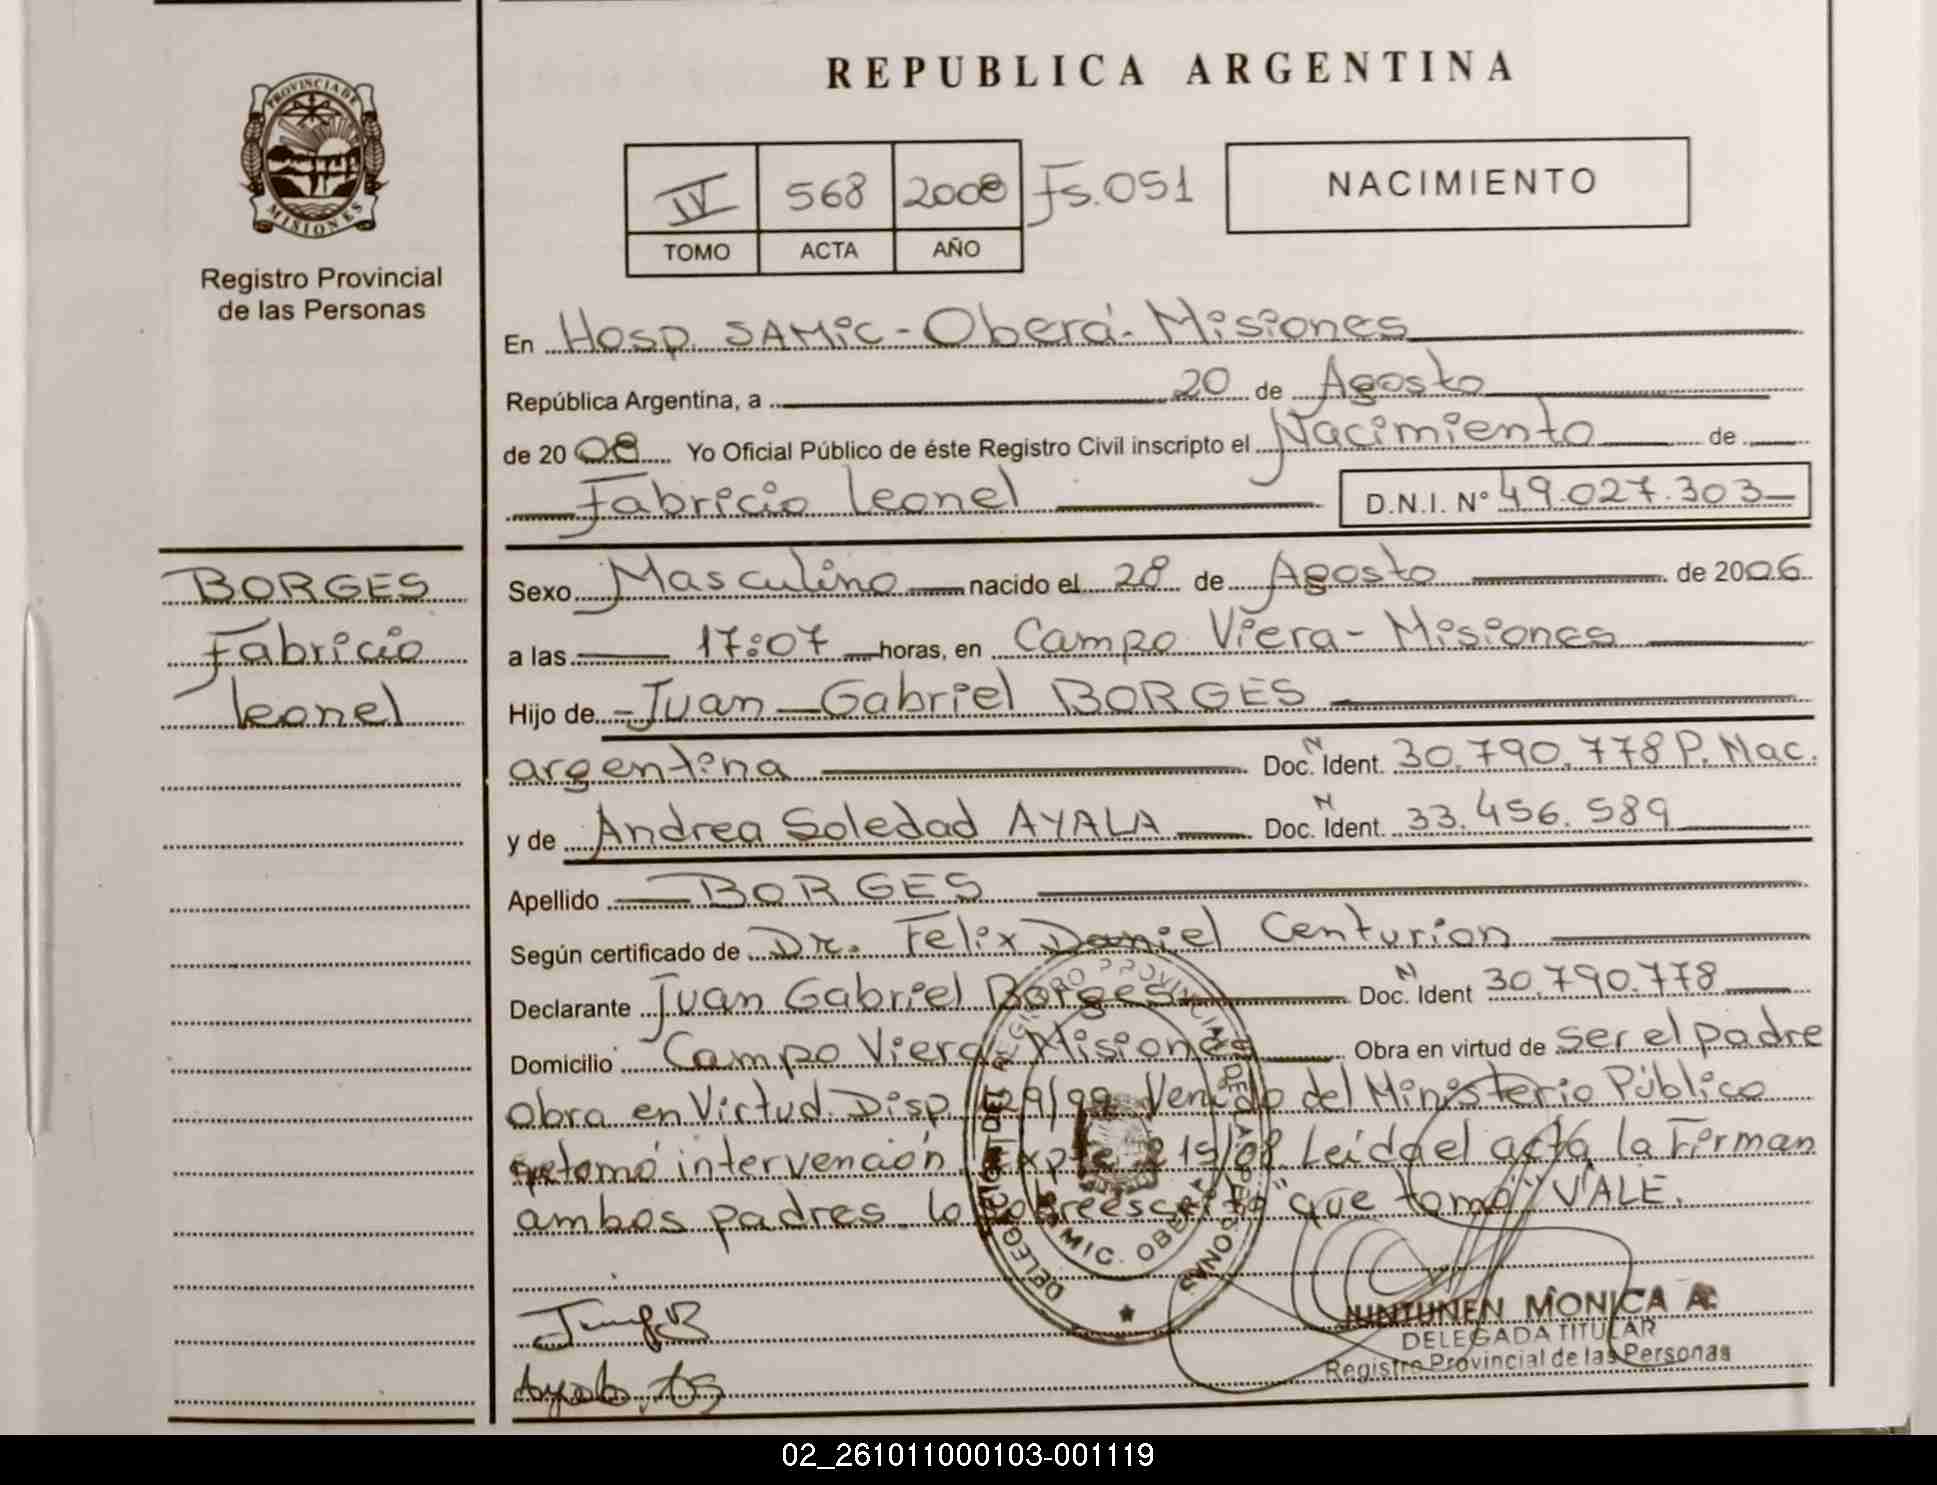 REPUBLICA ARGENTINA
PROVINCIA DE MISIONES
Registro Provincial
de las Personas
IV 568 2008 Fs. 051
TOMO ACTA AÑO
NACIMIENTO
En Hosp. SAMiC - Oberá - Misiones
República Argentina, a 20 de Agosto
de 2008 Yo Oficial Público de éste Registro Civil inscripto el Nacimiento de
Fabricio Leonel D.N.I. Nº 49.027.303
BORGES
Fabricio
Leonel
Sexo Masculino nacido el 28 de Agosto de 2006
a las 17:07 horas, en Campo Viera - Misiones
Hijo de Juan Gabriel BORGES
argentina Doc. N Ident. 30.790.778 P. Nac.
y de Andrea Soledad AYALA Doc. N Ident. 33.456.589
Apellido BORGES
Según certificado de Dr. Felix Daniel Centurion
Declarante Juan Gabriel Borges Doc. N Ident 30.790.778
Domicilio Campo Viera - Misiones Obra en virtud de ser el padre
obra en Virtud Disp. /99 Venido del Ministerio Público
que tomó intervención Expte 219/08. Leída el acta la Firman
ambos padres. lo sobreescrito "que tomó" VALE.
JUNTUNEN MONICA A.
DELEGADA TITULAR
Registro Provincial de las Personas
02_261011000103-001119